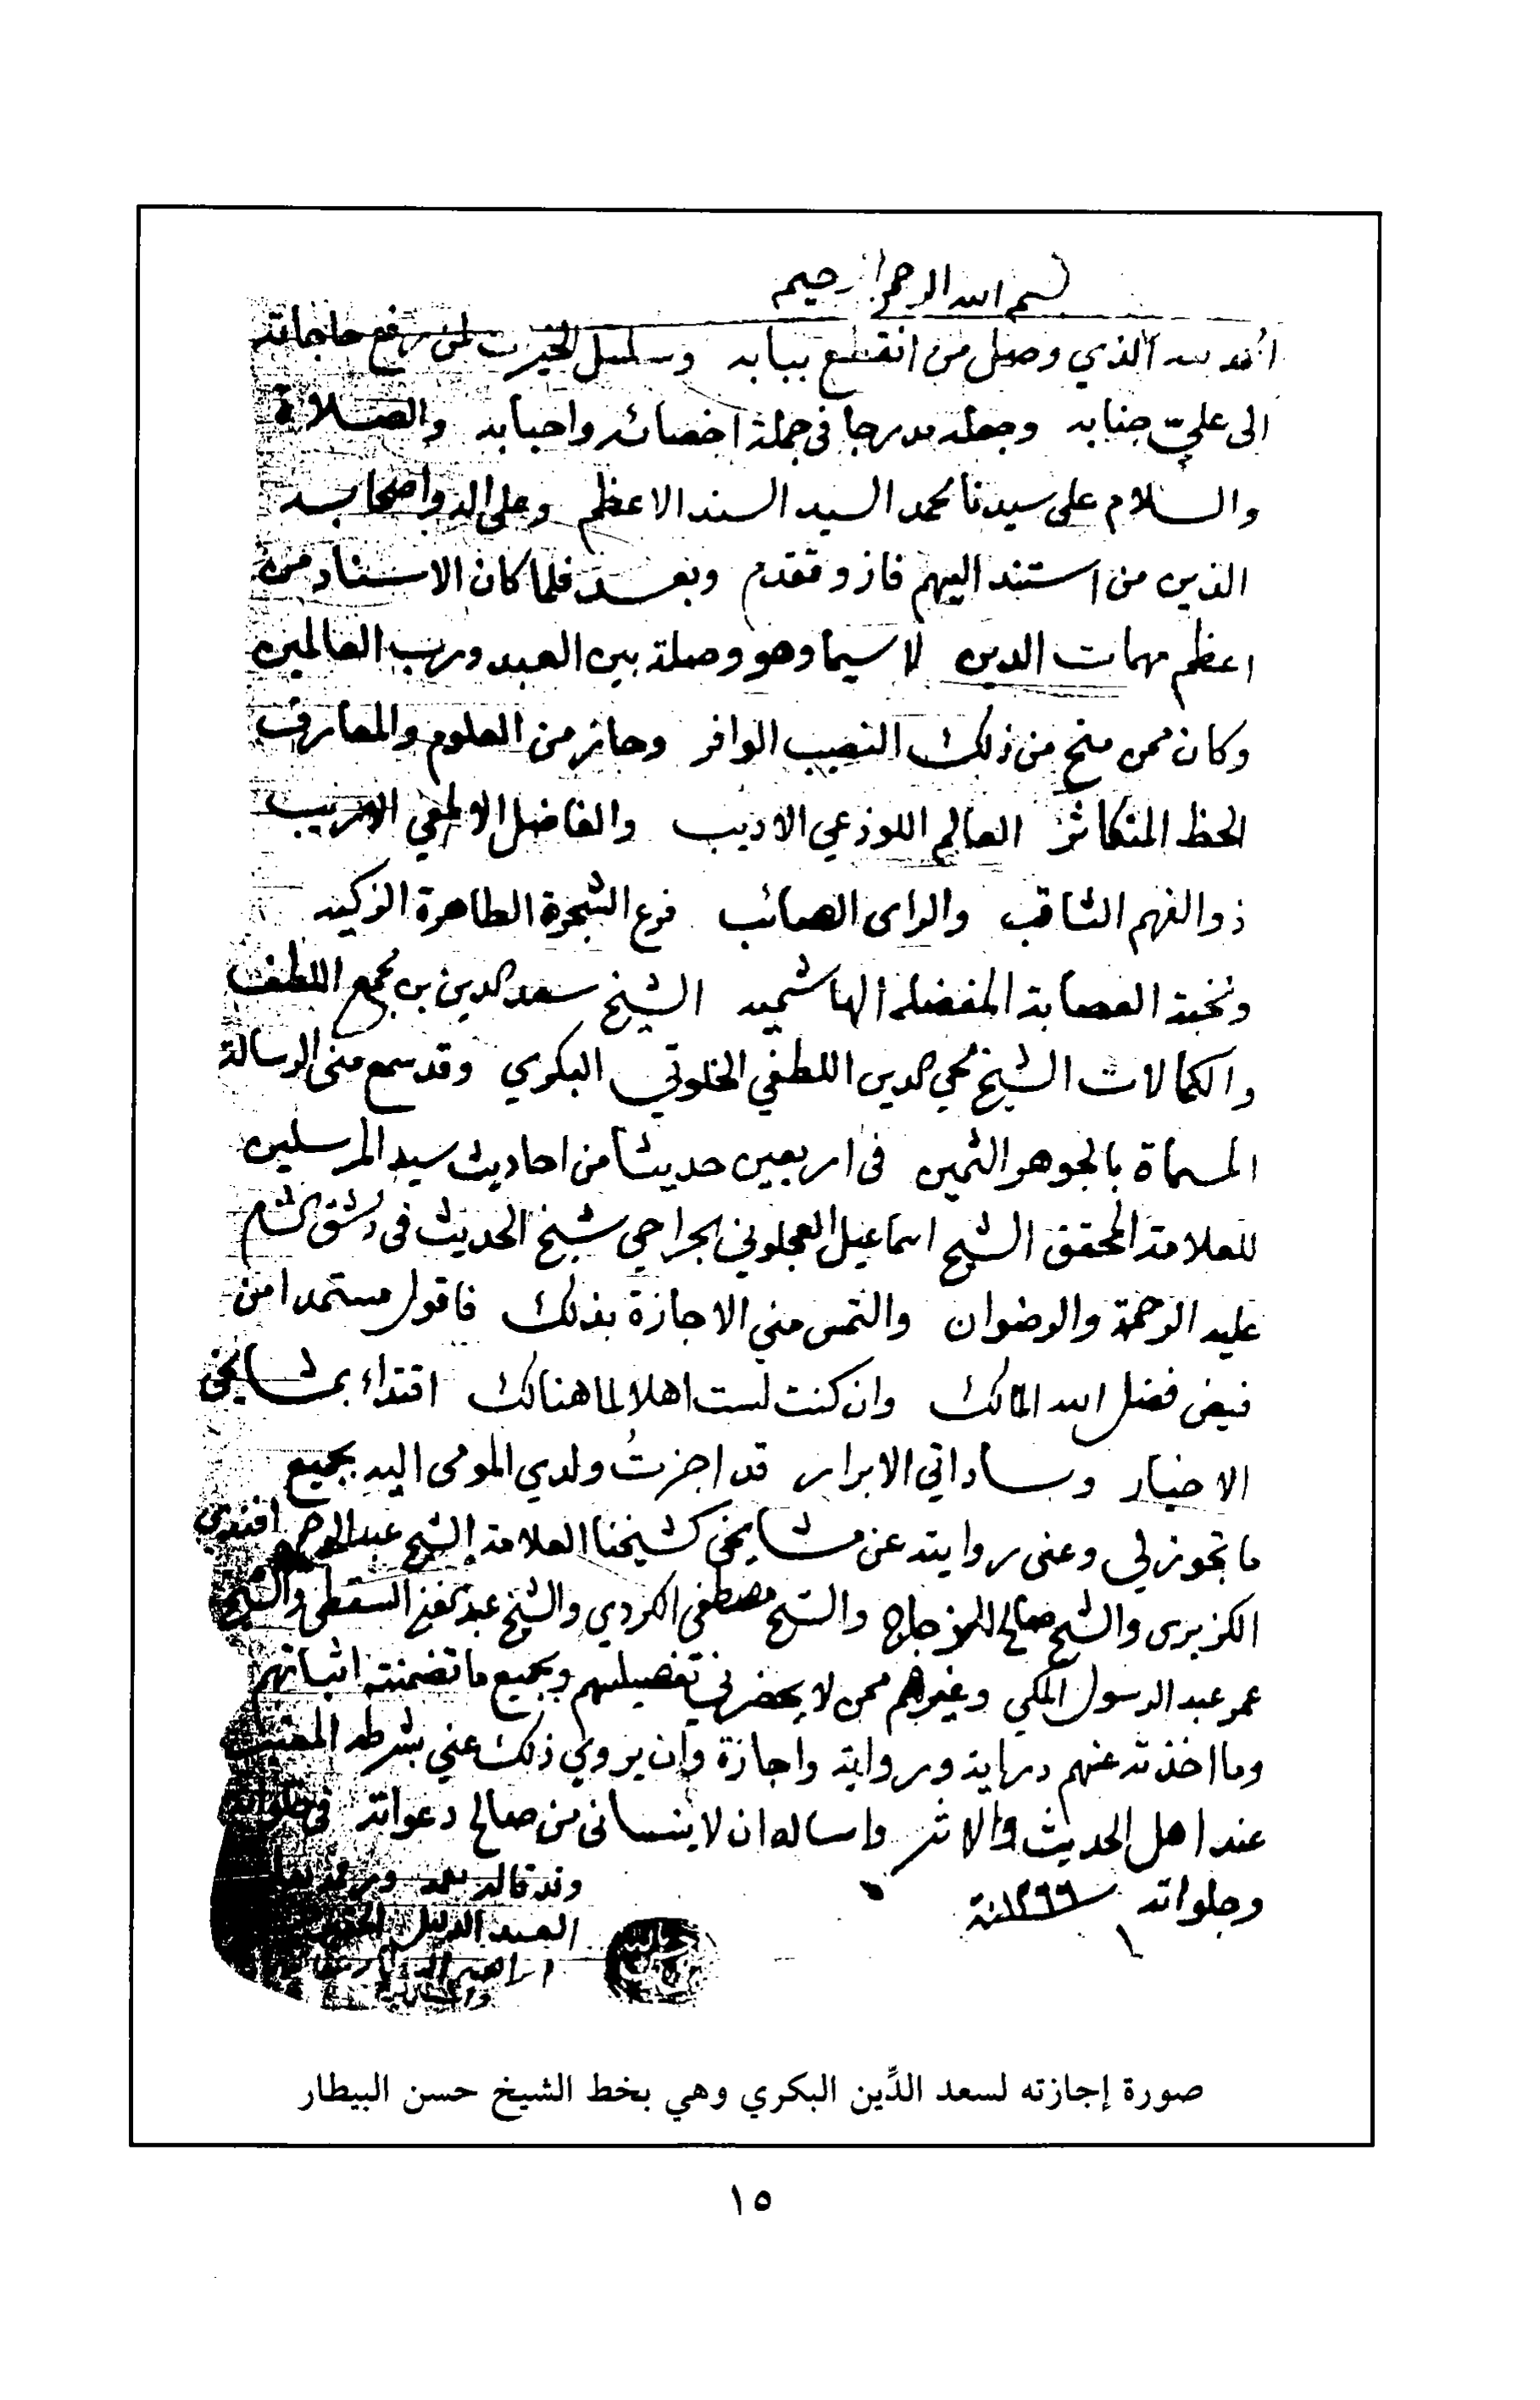 بسم الله الرحمن الرحيم
الحمد لله الذي وصل من انقطع ببابه وسلسل الخيرات لمن رفع حاجاته
الى عليّ جنابه وجعله مدرجا في جملة اخصائه واحبابه والصلاة
والسلام على سيدنا محمد السيد السند الاعظم وعلى اله واصحابه
الذين من استند اليهم فاز وتقدم وبعد فلما كان الاسناد من
اعظم مهمات الدين لا سيما وهو وصلة بين العبد ورب العالمين
وكان ممن منح من ذلك النصيب الوافر وحاز من العلوم والمعارف
الحظ المتكاثر العالم اللوذعي الاديب والفاضل الالمعي الاريب
ذو الفهم الثاقب والراى الصائب فرع الشجرة الطاهرة الزكيه
ونخبة العصابة المفضله الهاشميه الشيخ سعد الدين بن مجمع اللطف
والكمالات الشيخ محي الدين اللطفي الخلوتي البكري وقد سمع منى الرسالة
المسماة بالجوهر الثمين فى اربعين حديثا من احاديث سيد المرسلين
للعلامة المحقق الشيخ اسماعيل العجلوني الجراحي شيخ الحديث فى دمشق الشام
عليه الرحمة والرضوان والتمس مني الاجازة بذلك فاقول مستمدا من
فيض فضل الله المالك وان كنت لست اهلا لما هنالك اقتداء بمشايخى
الاخيار وساداتي الابرار قد اجزتُ ولدي المومى اليه بجميع
ما تجوز لي وعنى روايته عن مشايخى كشيخنا العلامة الشيخ عبد الرحمن افندي
الكزبرى والشيخ صالح الزجاج والشيخ مصطفى الكردي والشيخ عبد الغني السقطى والشيخ
عمر عبد الرسول المكي وغيرهم ممن لا يحضرني تفصيلهم وبجميع ما تضمنته اثباتهم
وما اخذته عنهم دراية ورواية واجازة وان يروي ذلك عني بشرطه المعتبر
عند اهل الحديث والاثر واساله ان لا ينسانى من صالح دعواته فى خلواته
وجلواته سنة ١٢٦٩
العبد الذليل
صورة إجازته لسعد الدِّين البكري وهي بخط الشيخ حسن البيطار
١٥